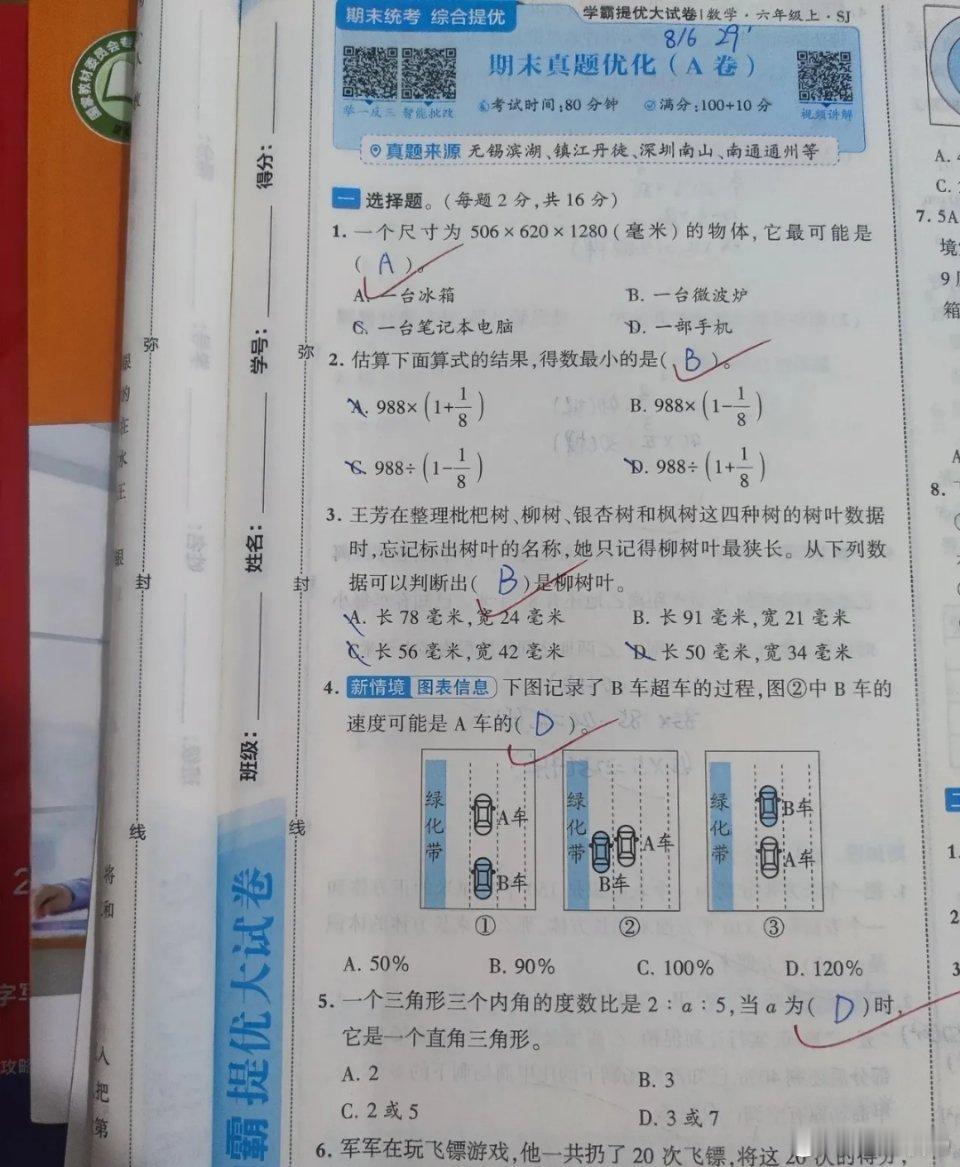 期末统考 综合提优
学霸提优大试卷 数学·六年级上·SJ
8/6 29'
期末真题优化(A卷)
举一反三 智能批改
考试时间:80分钟 满分:100+10分
视频讲解
真题来源 无锡滨湖、镇江丹徒、深圳南山、南通通州等
一 选择题。(每题2分,共16分)
1. 一个尺寸为506×620×1280(毫米)的物体,它最可能是
( A )。
A. 一台冰箱 B. 一台微波炉
C. 一台笔记本电脑 D. 一部手机
2. 估算下面算式的结果,得数最小的是( B )。
A. 988×(1+1/8) B. 988×(1-1/8)
C. 988÷(1-1/8) D. 988÷(1+1/8)
3. 王芳在整理枇杷树、柳树、银杏树和枫树这四种树的树叶数据
时,忘记标出树叶的名称,她只记得柳树叶最狭长。从下列数
据可以判断出( B )是柳树叶。
A. 长78毫米,宽24毫米 B. 长91毫米,宽21毫米
C. 长56毫米,宽42毫米 D. 长50毫米,宽34毫米
4. 新情境 图表信息 下图记录了B车超车的过程,图②中B车的
速度可能是A车的( D )。
绿化带 A车 B车
绿化带 A车 B车
绿化带 B车 A车
① ② ③
A. 50% B. 90% C. 100% D. 120%
5. 一个三角形三个内角的度数比是2:a:5,当a为( D )时,
它是一个直角三角形。
A. 2 B. 3
C. 2或5 D. 3或7
6. 军军在玩飞镖游戏,他一共扔了20次飞镖,将这20次的得分,
得分:
学号:
姓名:
班级:
弥 封 线
弥 封 线
霸提优大试卷
7. 5A
境
9
箱
8.